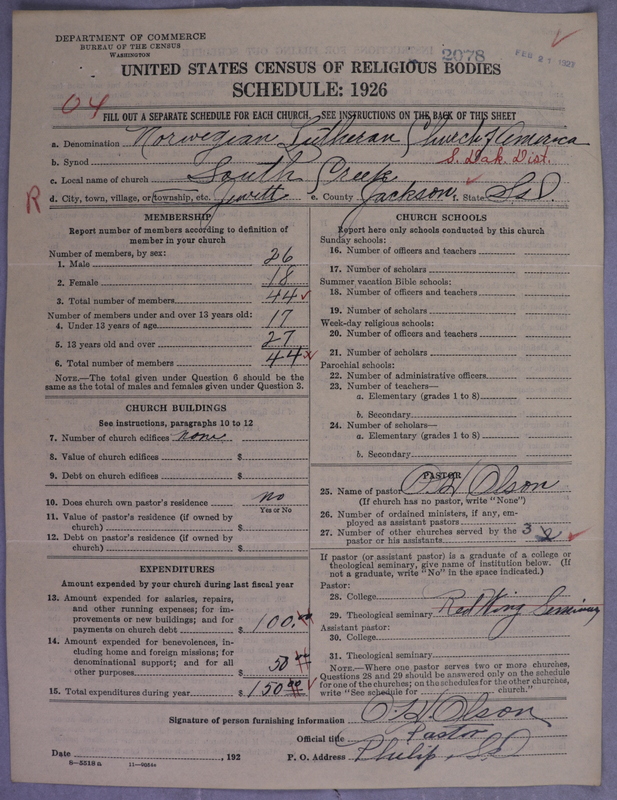 DEPARTMENT OF COMMERCE
BUREAU OF THE CENSUS
WASHINGTON
2078
FEB 21 1927
UNITED STATES CENSUS OF RELIGIOUS BODIES
SCHEDULE: 1926
04
FILL OUT A SEPARATE SCHEDULE FOR EACH CHURCH. SEE INSTRUCTIONS ON THE BACK OF THIS SHEET
a. Denomination Norwegian Lutheran Church of America
b. Synod S. Dak. Dist.
c. Local name of church South Creek
R
d. City, town, village, or township, etc. Jewitt e. County Jackson f. State S.D.
MEMBERSHIP
Report number of members according to definition of
member in your church
Number of members, by sex:
1. Male 26
2. Female 18
3. Total number of members 44
Number of members under and over 13 years old:
4. Under 13 years of age 17
5. 13 years old and over 27
6. Total number of members 44
NOTE.—The total given under Question 6 should be the
same as the total of males and females given under Question 3.
CHURCH BUILDINGS
See instructions, paragraphs 10 to 12
7. Number of church edifices none
8. Value of church edifices $
9. Debt on church edifices $
10. Does church own pastor's residence no
Yes or No
11. Value of pastor's residence (if owned by
church) $
12. Debt on pastor's residence (if owned by
church) $
EXPENDITURES
Amount expended by your church during last fiscal year
13. Amount expended for salaries, repairs,
and other running expenses; for im-
provements or new buildings; and for
payments on church debt $ 100.00
14. Amount expended for benevolences, in-
cluding home and foreign missions; for
denominational support; and for all
other purposes $ 50 00
15. Total expenditures during year $ 150 00
CHURCH SCHOOLS
Report here only schools conducted by this church
Sunday schools:
16. Number of officers and teachers
17. Number of scholars
Summer vacation Bible schools:
18. Number of officers and teachers
19. Number of scholars
Week-day religious schools:
20. Number of officers and teachers
21. Number of scholars
Parochial schools:
22. Number of administrative officers
23. Number of teachers—
a. Elementary (grades 1 to 8)
b. Secondary
24. Number of scholars—
a. Elementary (grades 1 to 8)
b. Secondary
PASTOR
25. Name of pastor O. H. Olson
(If church has no pastor, write "None")
26. Number of ordained ministers, if any, em-
ployed as assistant pastors
27. Number of other churches served by the 3
pastor or his assistants
If pastor (or assistant pastor) is a graduate of a college or
theological seminary, give name of institution below. (If
not a graduate, write "No" in the space indicated.)
Pastor:
28. College
29. Theological seminary Red Wing Seminary
Assistant pastor:
30. College
31. Theological seminary
NOTE.—Where one pastor serves two or more churches,
Questions 28 and 29 should be answered only on the schedule
for one of the churches; on the schedules for the other churches,
write "See schedule for church."
Signature of person furnishing information O. H. Olson
Official title Pastor
Date , 192 P. O. Address Philip, S.D.
8—5518 a